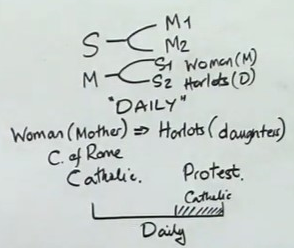 M1
S
M2
S1 Woman (M)
M
S2 Horlots (D)
"DAILY"
Woman (Mother) ⇒ Horlots (daughters)
C. of Rome
Catholic. Protest.
Catholic
Daily